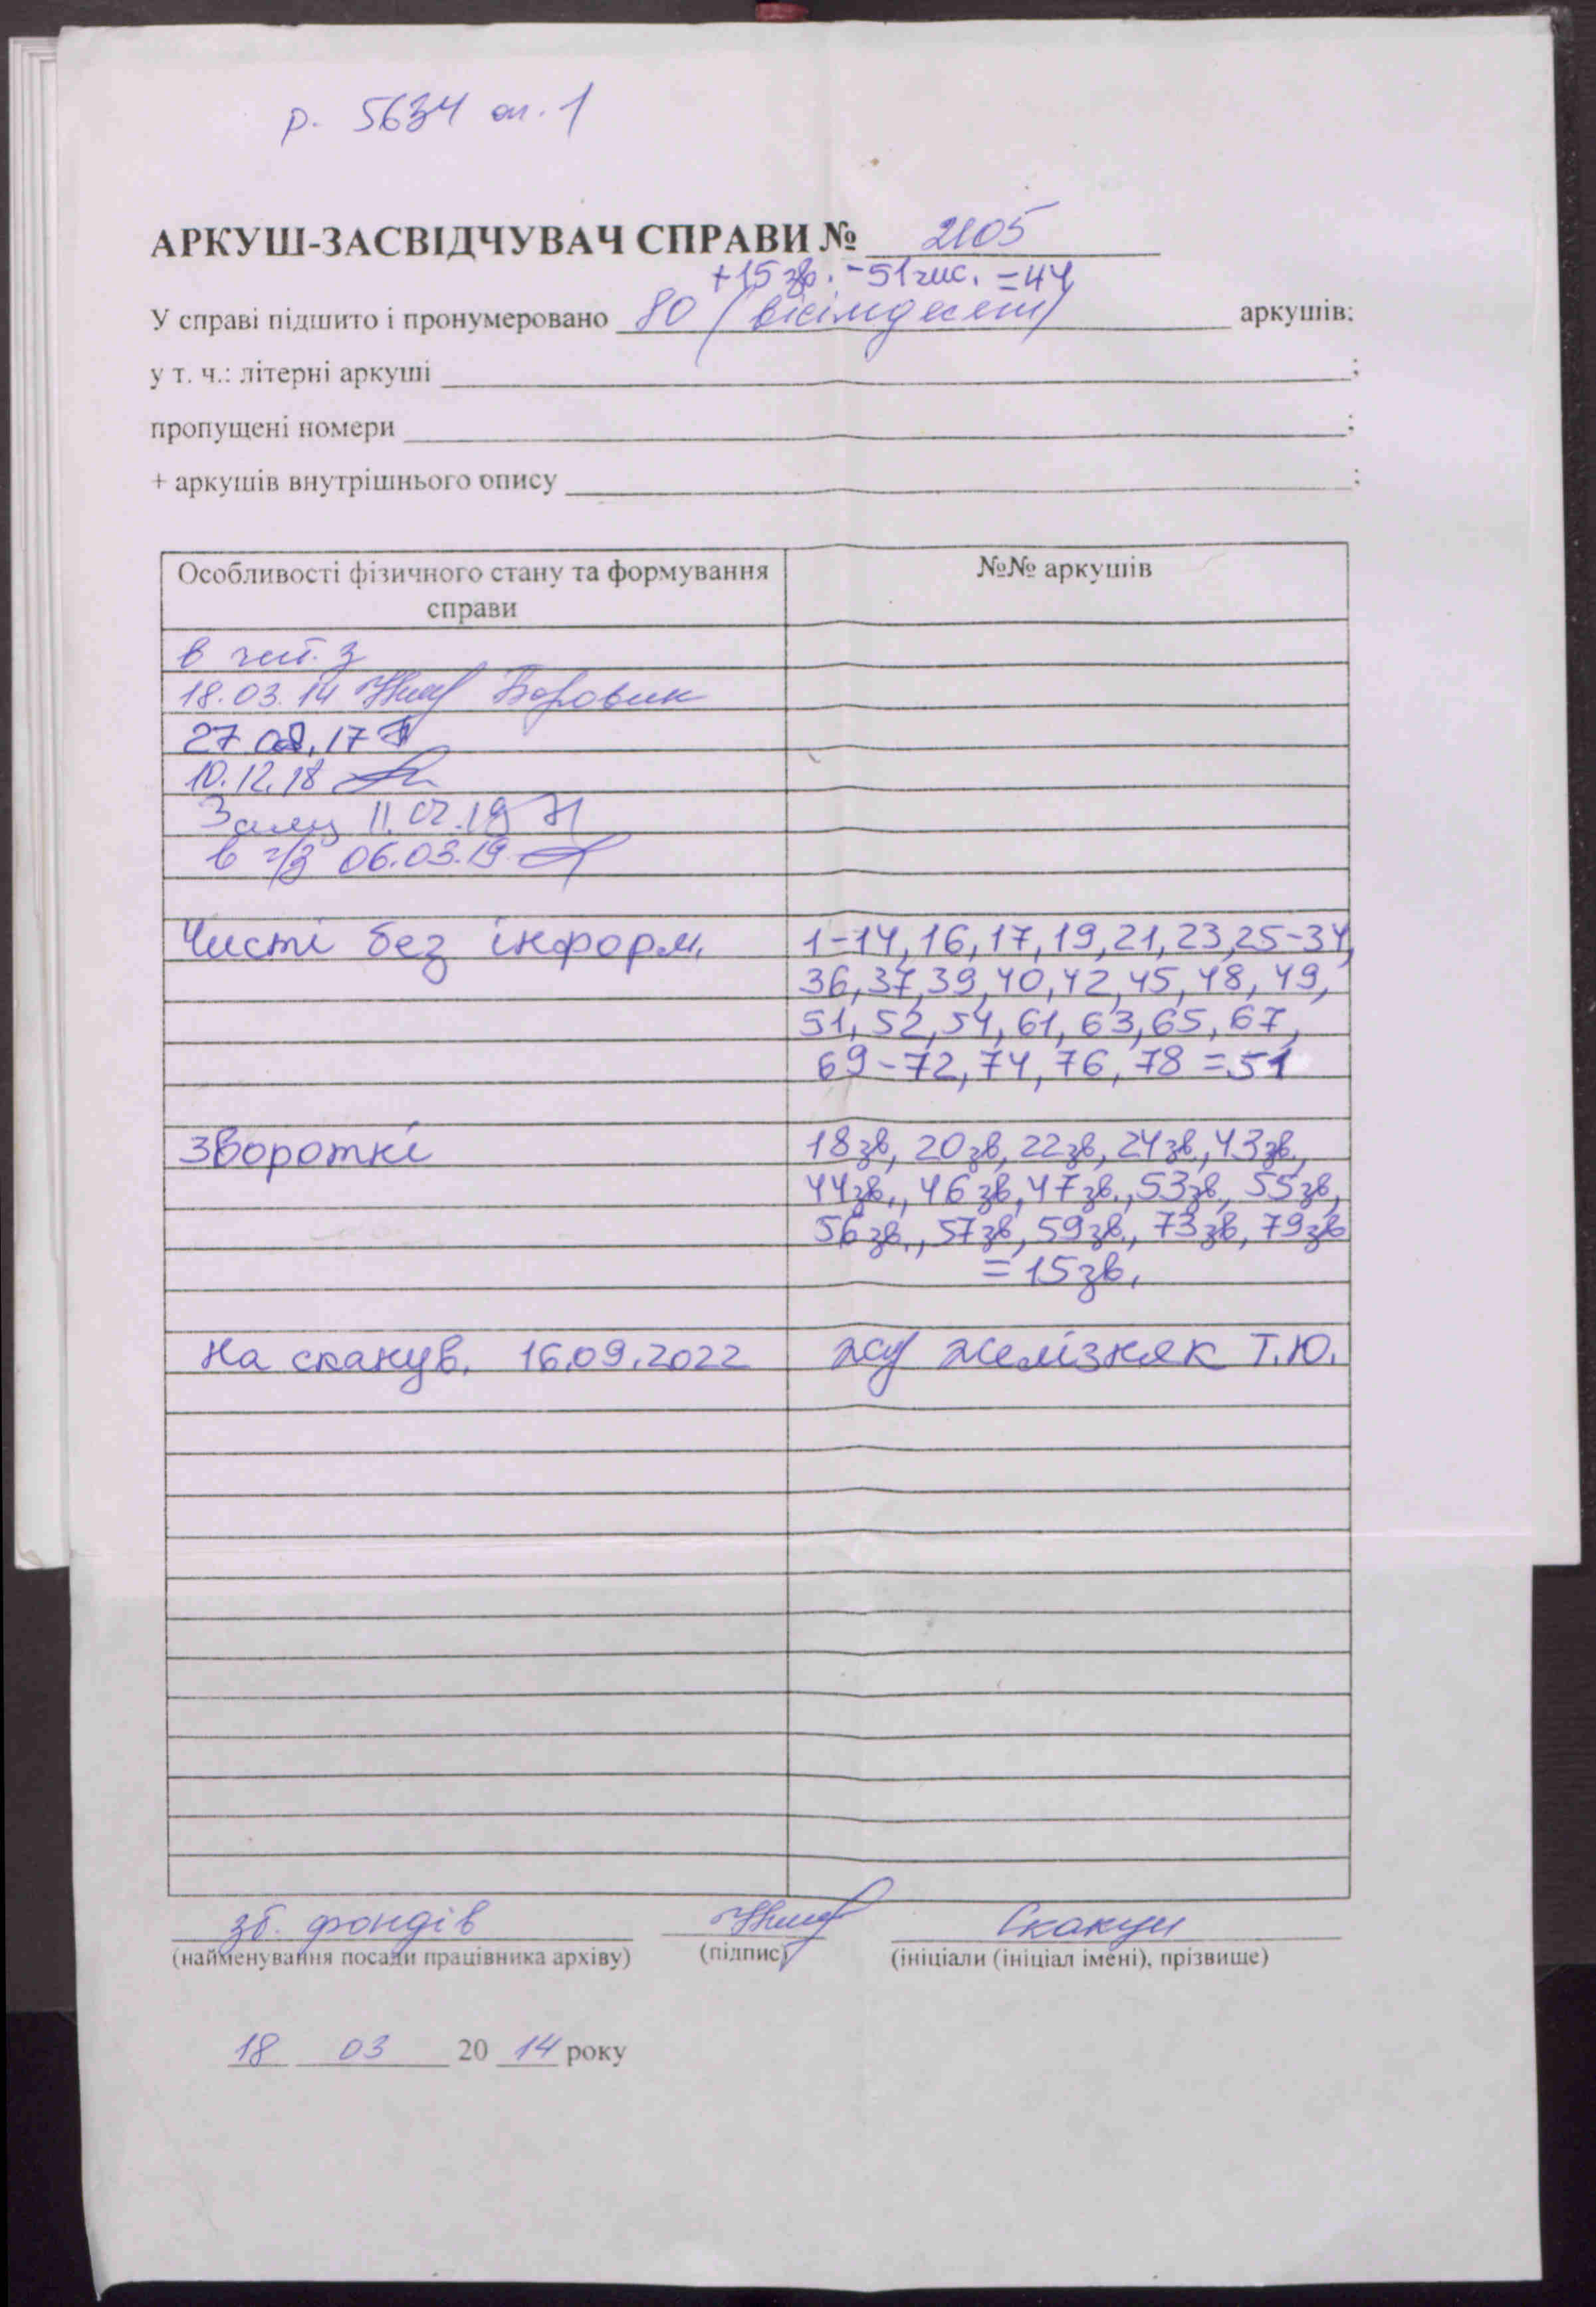 р. 5634 оп. 1
АРКУШ-ЗАСВІДЧУВАЧ СПРАВИ № 2105
+15 зв. -51 чис. =44
У справі підшито і пронумеровано 80 (вісімдесят) аркушів;
у т. ч.: літерні аркуші ;
пропущені номери ;
+ аркушів внутрішнього опису ;
Особливості фізичного стану та формування справи
№№ аркушів
в чит. з
18.03.14 Боровик
27.08.17
10.12.18
11.02.19
в ч/з 06.03.19
Чисті без інформ. 1-14, 16, 17, 19, 21, 23, 25-34,
36, 37, 39, 40, 42, 45, 48, 49,
51, 52, 54, 61, 63, 65, 67,
69-72, 74, 76, 78 = 51
Зворотні 18зв, 20зв, 22зв, 24зв, 43зв.,
44зв., 46зв, 47зв., 53зв, 55зв,
56зв., 57зв, 59зв., 73зв, 79зв
=15зв.
На сканув. 16.09.2022 Желізняк Т.Ю.
зб. фондів Скакун
(найменування посади працівника архіву) (підпис) (ініціали (ініціал імені), прізвище)
18 03 20 14 року